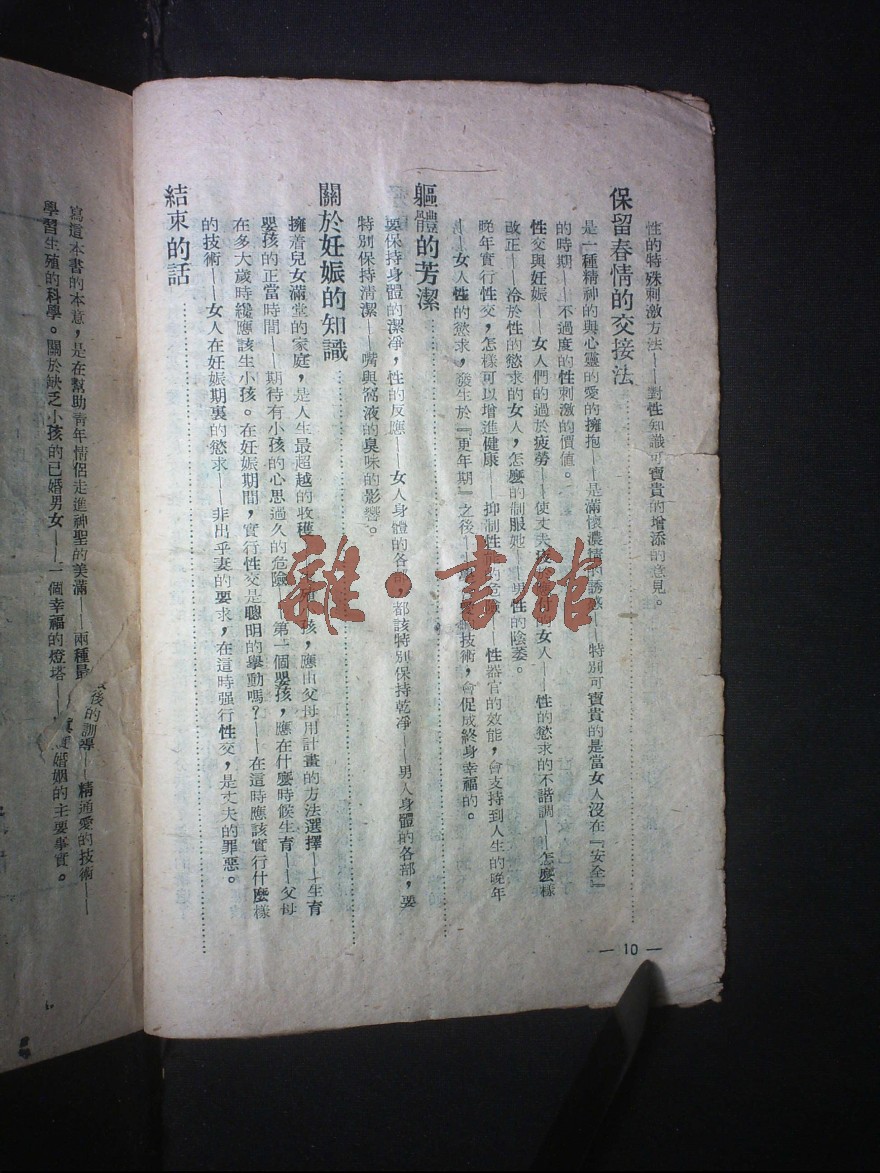 性的特殊刺激方法——對性知識可寶貴的增添的意見。
保留春情的交接法
是一種精神的與心靈的愛的擁抱——是滿懷濃情的誘惑——特別可寶貴的是當女人沒在『安全』
的時期——不過度的性刺激的價值。
性交與妊娠——女人們的過於疲勞——使丈夫 的女人——性的慾求的不諧調——怎麼樣
改正——冷於性的慾求的女人，怎麼的制服她——男性的陰萎。
晚年實行性交，怎樣可以增進健康——抑制性 的危險——性器官的效能，會支持到人生的晚年
——女人性的慾求，發生於『更年期』之後—— 的技術，會促成終身幸福的。
軀體的芳潔
要保持身體的潔凈，性的反應——女人身體的各部，都該特別保持乾凈——男人身體的各部，要
特別保持清潔——嘴與瀉液的臭味的影響。
關於妊娠的知識
擁着兒女滿堂的家庭，是人生最超越的收穫 孩，應由父母用計畫的方法選擇——生育
嬰孩的正當時間——期待有小孩的心思過久的危險——第一個嬰孩，應在什麼時候生育——父母
在多大歲時纔應該生小孩。在妊娠期間，實行性交是聰明的舉動嗎？——在這時應該實行什麼樣
的技術——女人在妊娠期裏的慾求——非出乎妻的要求，在這時强行性交，是丈夫的罪惡。
結束的話
— 10 —
寫這本書的本意，是在幫助青年情侶走進神聖的美滿——兩種最 後的訓導——精通愛的技術——
學習生殖的科學。關於缺乏小孩的已婚男女——一個幸福的燈塔—— 婚姻的主要事實。
雜·書館